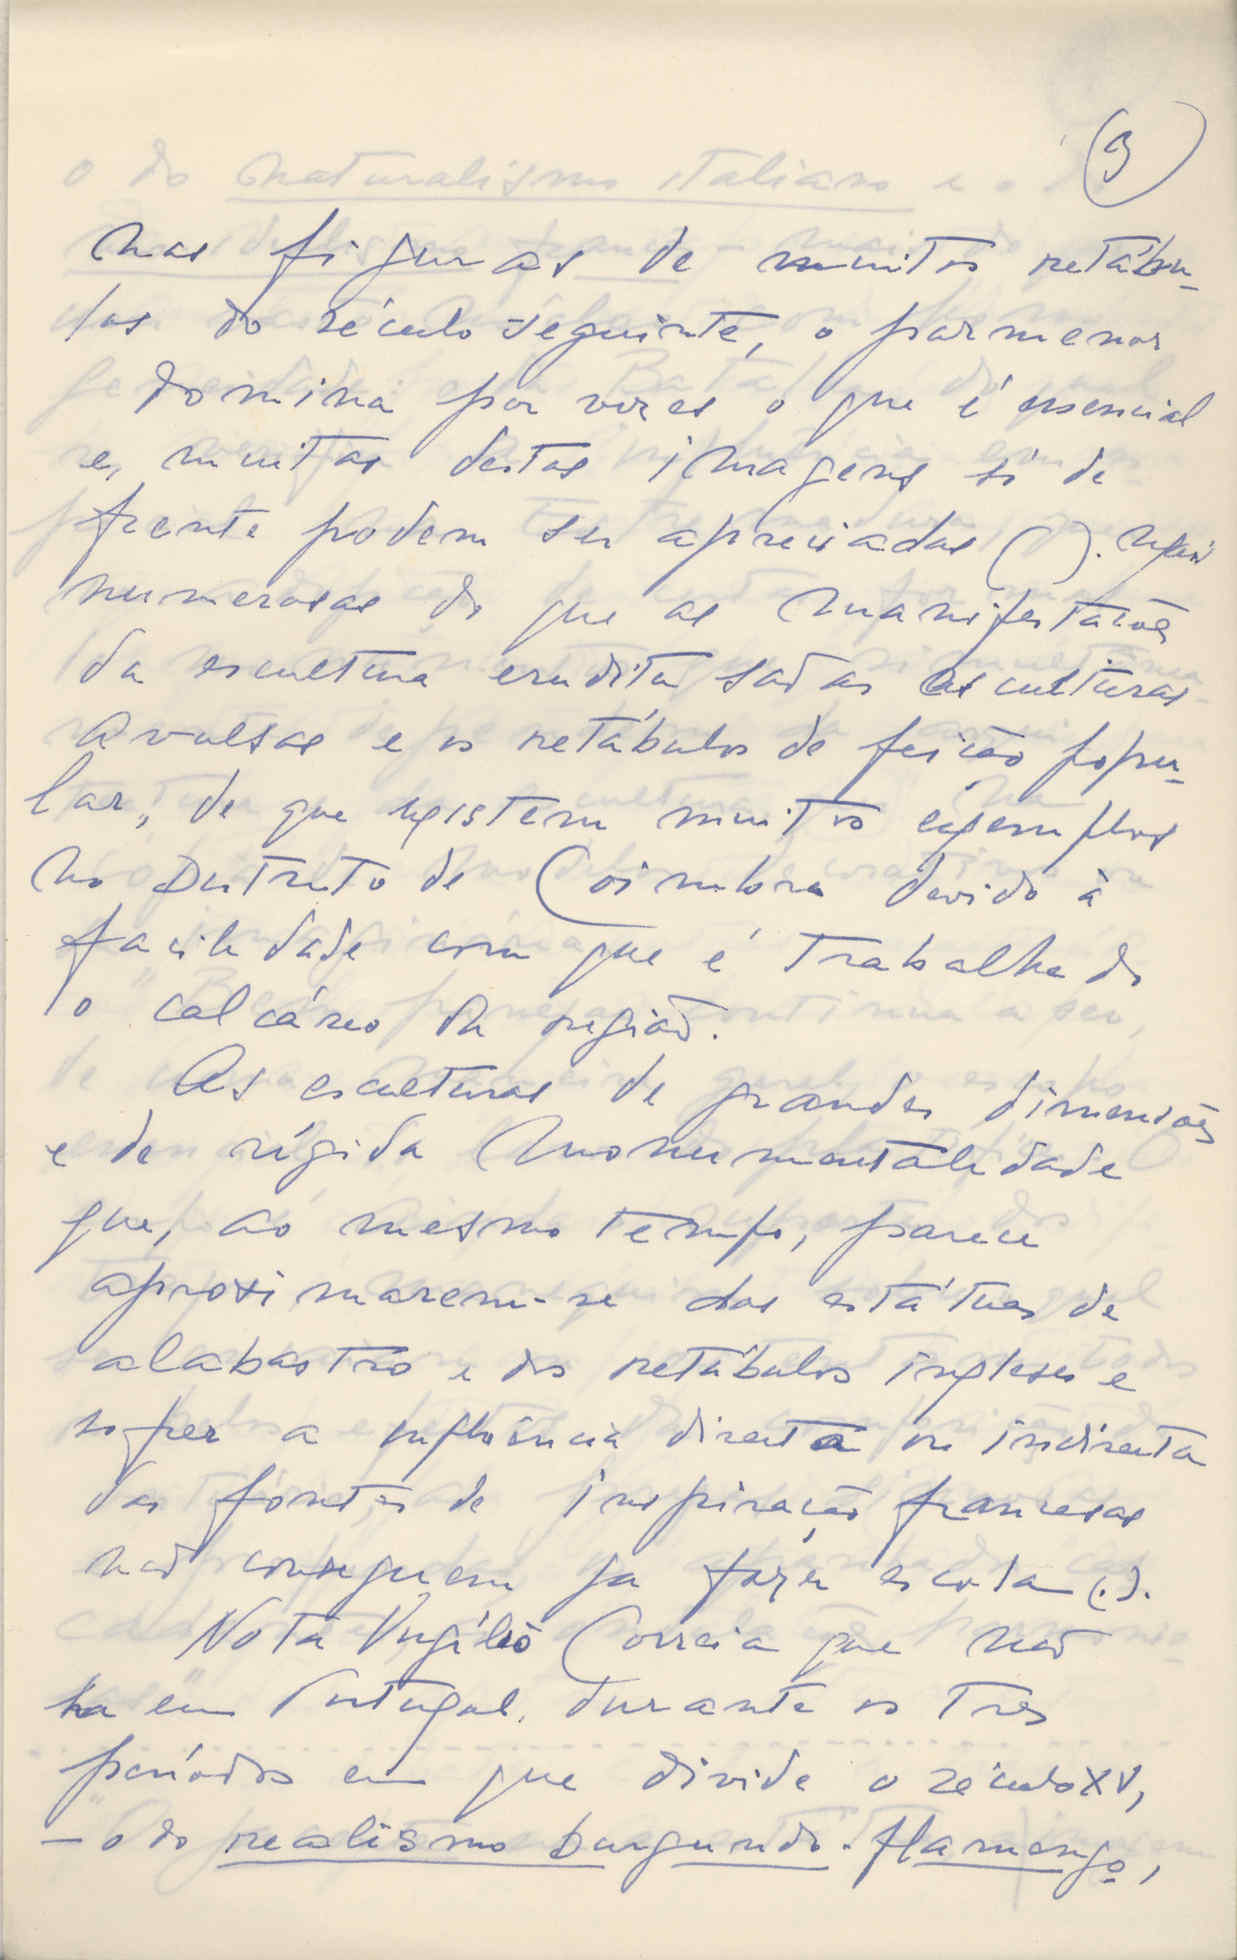 (9)
nas figuras de muitos retábu-
los do século seguinte, o pormenor
domina por vezes o que é essencial
e, muitas destas imagens só de
frente podem ser apreciadas ( ). Mais
numerosas do que as manifestações
da escultura erudita são as esculturas
avulsas e os retábulos de feição popu-
lar, de que existem muitos exemplos
no Distrito de Coimbra devido à
facilidade com que é trabalhado
o calcáreo da região.
As esculturas de grandes dimensões
e de rígida monumentalidade
que, ao mesmo tempo, parece
aproximarem-se das estátuas de
alabastro e dos retábulos ingleses e
sofrer a influência directa ou indirecta
das fontes de inspiração francesas
não conseguem já fazer escola (.).
Nota Vergílio Correia que não
ha em Portugal, durante os três
períodos em que divide o século XV,
— o do realismo burgundo-flamengo,